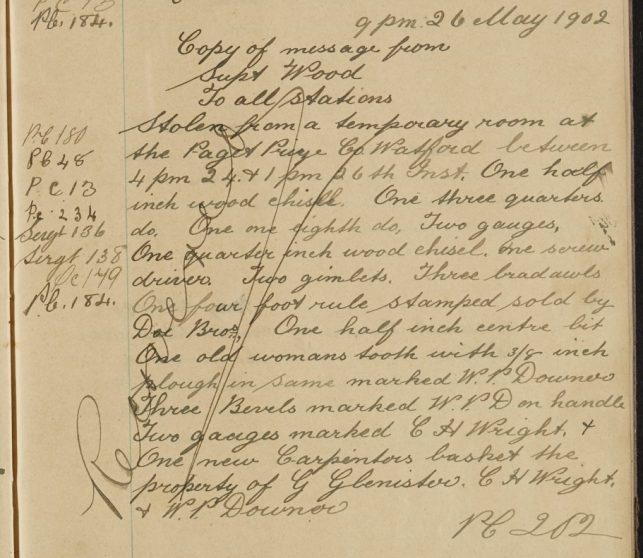 Pc 184.
9 pm. 26 May 1902
Copy of message from
Supt Wood
To all stations
Stolen from a temporary room at
the Paget Prize Co. Watford between
4 pm 24. & 1 pm 26th Inst. One half
inch wood chisel. One three quarters
do. One one eighth do, Two gauges,
One quarter inch wood chisel. one screw
driver. Two gimlets. Three bradawls
One four foot rule stamped sold by
Bros, One half inch centre bit
One old womans tooth with 3/8 inch
plough in same marked W. P. Downer
Three Bevels marked W. P. D on handle
Two gauges marked C H Wright. &
One new Carpenters basket the
property of G Glenister. C H Wright.
& W. P. Downer
PC 202
PC 180
PC 48
PC 13
Pc 234
Sergt 136
Sergt 138
Pc 149
Pc. 184.